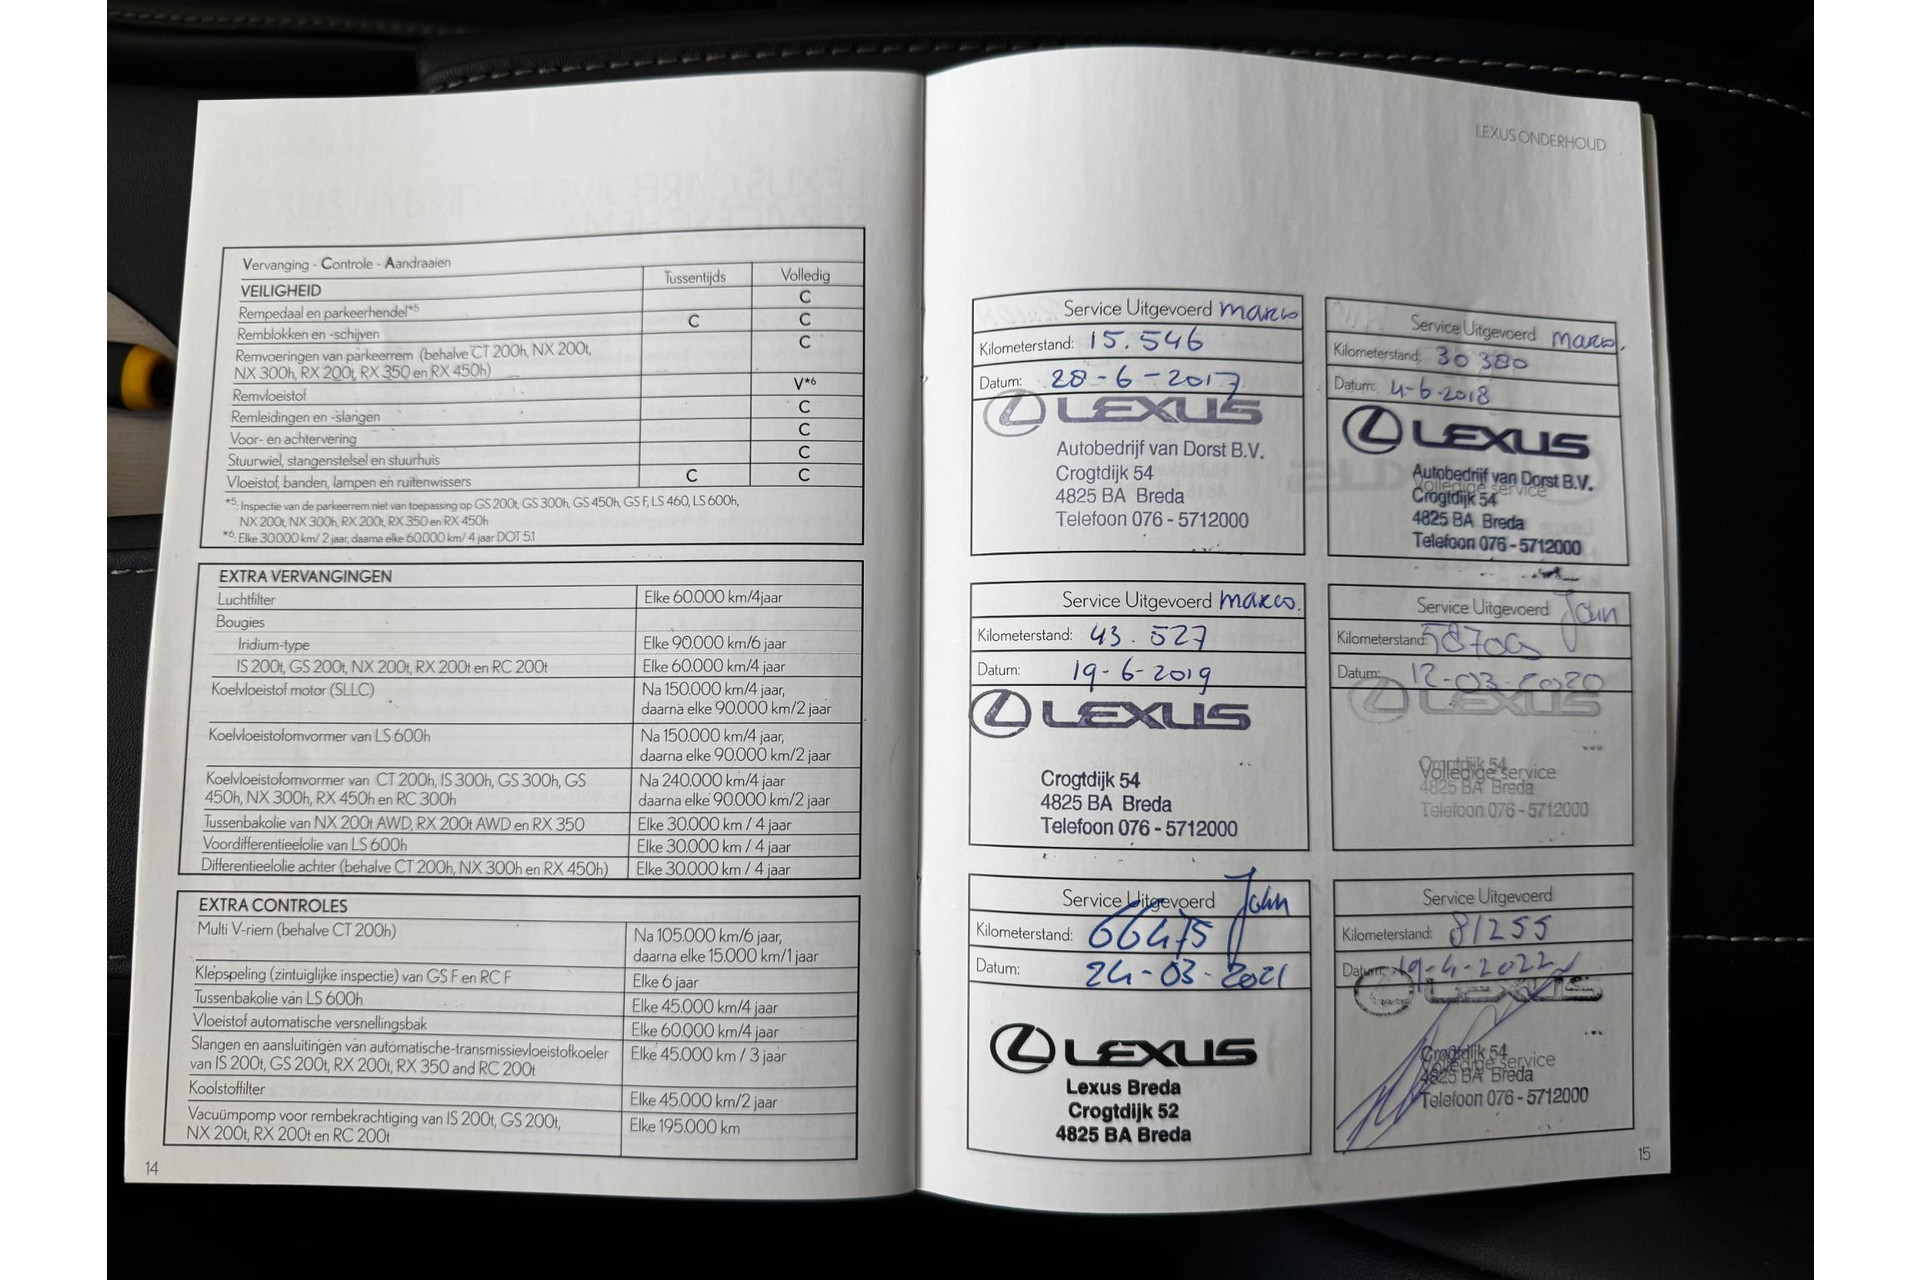 Vervanging - Controle - Aandraaien
VEILIGHEID Tussentijds Volledig
Rempedaal en parkeerhendel*5 C
Remblokken en -schijven C C
Remvoeringen van parkeerrem (behalve CT 200h, NX 200t, C
NX 300h, RX 200t, RX 350 en RX 450h)
Remvloeistof V*6
Remleidingen en -slangen C
Voor- en achtervering C
Stuurwiel, stangenstelsel en stuurhuis C
Vloeistof, banden, lampen en ruitenwissers C C
*5: Inspectie van de parkeerrem niet van toepassing op GS 200t, GS 300h, GS 450h, GS F, LS 460, LS 600h,
NX 200t, NX 300h, RX 200t, RX 350 en RX 450h
*6: Elke 30.000 km/ 2 jaar, daarna elke 60.000 km/ 4 jaar DOT 5.1
EXTRA VERVANGINGEN
Luchtfilter Elke 60.000 km/4jaar
Bougies
Iridium-type Elke 90.000 km/6 jaar
IS 200t, GS 200t, NX 200t, RX 200t en RC 200t Elke 60.000 km/4 jaar
Koelvloeistof motor (SLLC) Na 150.000 km/4 jaar,
daarna elke 90.000 km/2 jaar
Koelvloeistofomvormer van LS 600h Na 150.000 km/4 jaar,
daarna elke 90.000 km/2 jaar
Koelvloeistofomvormer van CT 200h, IS 300h, GS 300h, GS Na 240.000 km/4 jaar
450h, NX 300h, RX 450h en RC 300h daarna elke 90.000 km/2 jaar
Tussenbakolie van NX 200t AWD, RX 200t AWD en RX 350 Elke 30.000 km / 4 jaar
Voordifferentieelolie van LS 600h Elke 30.000 km / 4 jaar
Differentieelolie achter (behalve CT 200h, NX 300h en RX 450h) Elke 30.000 km / 4 jaar
EXTRA CONTROLES
Multi V-riem (behalve CT 200h) Na 105.000 km/6 jaar,
daarna elke 15.000 km/1 jaar
Klepspeling (zintuiglijke inspectie) van GS F en RC F Elke 6 jaar
Tussenbakolie van LS 600h Elke 45.000 km/4 jaar
Vloeistof automatische versnellingsbak Elke 60.000 km/4 jaar
Slangen en aansluitingen van automatische-transmissievloeistofkoeler Elke 45.000 km / 3 jaar
van IS 200t, GS 200t, RX 200t, RX 350 and RC 200t
Koolstoffilter Elke 45.000 km/2 jaar
Vacuümpomp voor rembekrachtiging van IS 200t, GS 200t, Elke 195.000 km
NX 200t, RX 200t en RC 200t
14
LEXUS ONDERHOUD
Service Uitgevoerd marco
Kilometerstand: 15.546
Datum: 28-6-2017
LEXUS
Autobedrijf van Dorst B.V.
Crogtdijk 54
4825 BA Breda
Telefoon 076 - 5712000
Service Uitgevoerd marco.
Kilometerstand: 30 380
Datum: 4-6-2018
LEXUS
Autobedrijf van Dorst B.V.
Volledige service
Crogtdijk 54
4825 BA Breda
Telefoon 076 - 5712000
Service Uitgevoerd marco.
Kilometerstand: 43.527
Datum: 19-6-2019
LEXUS
Crogtdijk 54
4825 BA Breda
Telefoon 076 - 5712000
Service Uitgevoerd John
Kilometerstand:
Datum: 12-03-2020
LEXUS
Crogtdijk 54
Volledige service
4825 BA Breda
Telefoon 076 - 5712000
Service Uitgevoerd John
Kilometerstand: 66475
Datum: 24-03-2021
LEXUS
Lexus Breda
Crogtdijk 52
4825 BA Breda
Service Uitgevoerd
Kilometerstand: 81255
Datum: 19-4-2022
LEXUS
Crogtdijk 54
Volledige service
4825 BA Breda
Telefoon 076 - 5712000
15